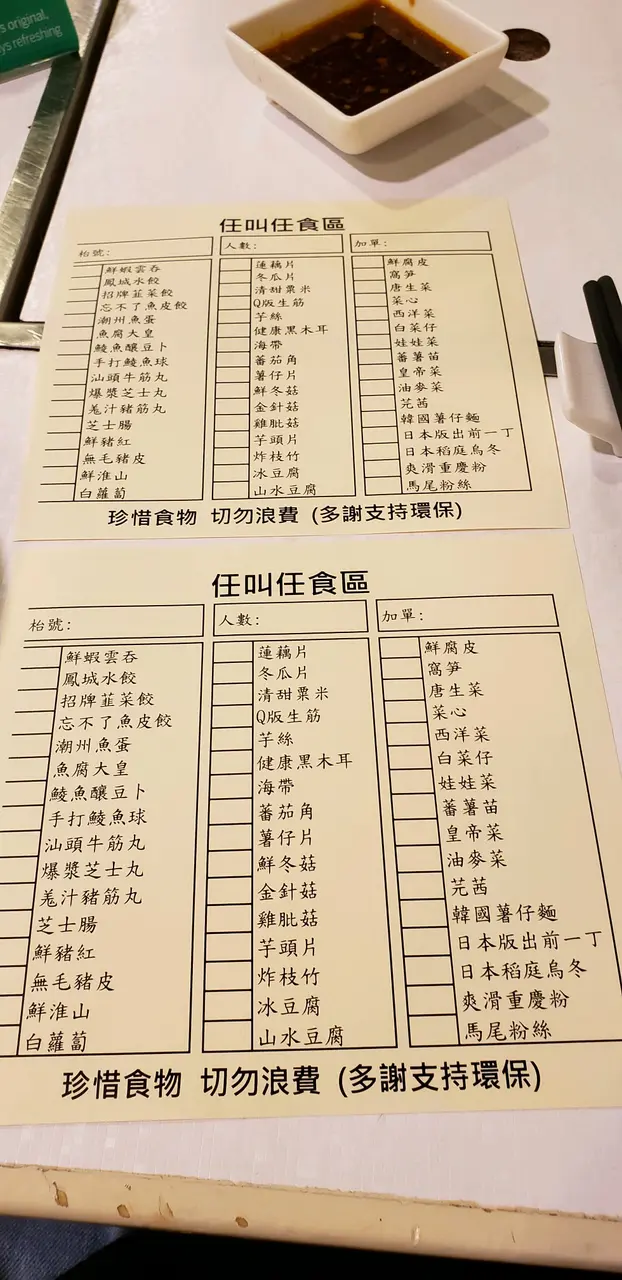 s original,
ys refreshing
任叫任食區
枱號:
鮮蝦雲吞
鳳城水餃
招牌韮菜餃
忘不了魚皮餃
潮州魚蛋
魚腐大皇
鯪魚釀豆卜
手打鯪魚球
汕頭牛筋丸
爆漿芝士丸
羗汁豬筋丸
芝士腸
鮮豬紅
無毛豬皮
鮮淮山
白蘿蔔
人數:
蓮藕片
冬瓜片
清甜粟米
Q版生筋
芋絲
健康黑木耳
海帶
番茄角
薯仔片
鮮冬菇
金針菇
雞肶菇
芋頭片
炸枝竹
冰豆腐
山水豆腐
加單:
鮮腐皮
窩笋
唐生菜
菜心
西洋菜
白菜仔
娃娃菜
番薯苗
皇帝菜
油麥菜
芫茜
韓國薯仔麵
日本版出前一丁
日本稻庭烏冬
爽滑重慶粉
馬尾粉絲
珍惜食物 切勿浪費 (多謝支持環保)
任叫任食區
枱號:
鮮蝦雲吞
鳳城水餃
招牌韮菜餃
忘不了魚皮餃
潮州魚蛋
魚腐大皇
鯪魚釀豆卜
手打鯪魚球
汕頭牛筋丸
爆漿芝士丸
羗汁豬筋丸
芝士腸
鮮豬紅
無毛豬皮
鮮淮山
白蘿蔔
人數:
蓮藕片
冬瓜片
清甜粟米
Q版生筋
芋絲
健康黑木耳
海帶
番茄角
薯仔片
鮮冬菇
金針菇
雞肶菇
芋頭片
炸枝竹
冰豆腐
山水豆腐
加單:
鮮腐皮
窩笋
唐生菜
菜心
西洋菜
白菜仔
娃娃菜
番薯苗
皇帝菜
油麥菜
芫茜
韓國薯仔麵
日本版出前一丁
日本稻庭烏冬
爽滑重慶粉
馬尾粉絲
珍惜食物 切勿浪費 (多謝支持環保)